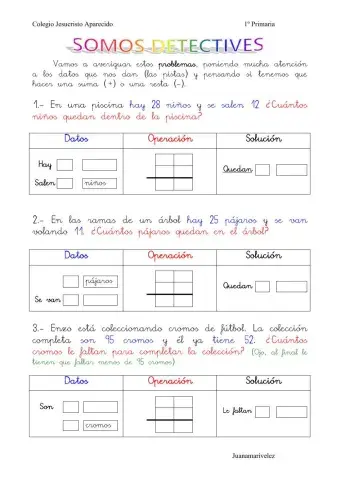 Colegio Jesucristo Aparecido 1º Primaria
SOMOS DETECTIVES
Vamos a averiguar estos problemas, poniendo mucha atención
a los datos que nos dan (las pistas) y pensando si tenemos que
hacer una suma (+) o una resta (-).
1.- En una piscina hay 28 niños y se salen 12 ¿Cuántos
niños quedan dentro de la piscina?
Datos Operación Solución
Hay
Quedan
Salen niños
2.- En las ramas de un árbol hay 25 pájaros y se van
volando 11. ¿Cuántos pájaros quedan en el árbol?
Datos Operación Solución
pájaros
Quedan
Se van
3.- Enzo está coleccionando cromos de fútbol. La colección
completa son 95 cromos y él ya tiene 52. ¿Cuántos
cromos le faltan para completar la colección? (Ojo, al final le
tienen que faltar menos de 95 cromos)
Datos Operación Solución
Son
Le faltan
cromos
Juanamarivelez